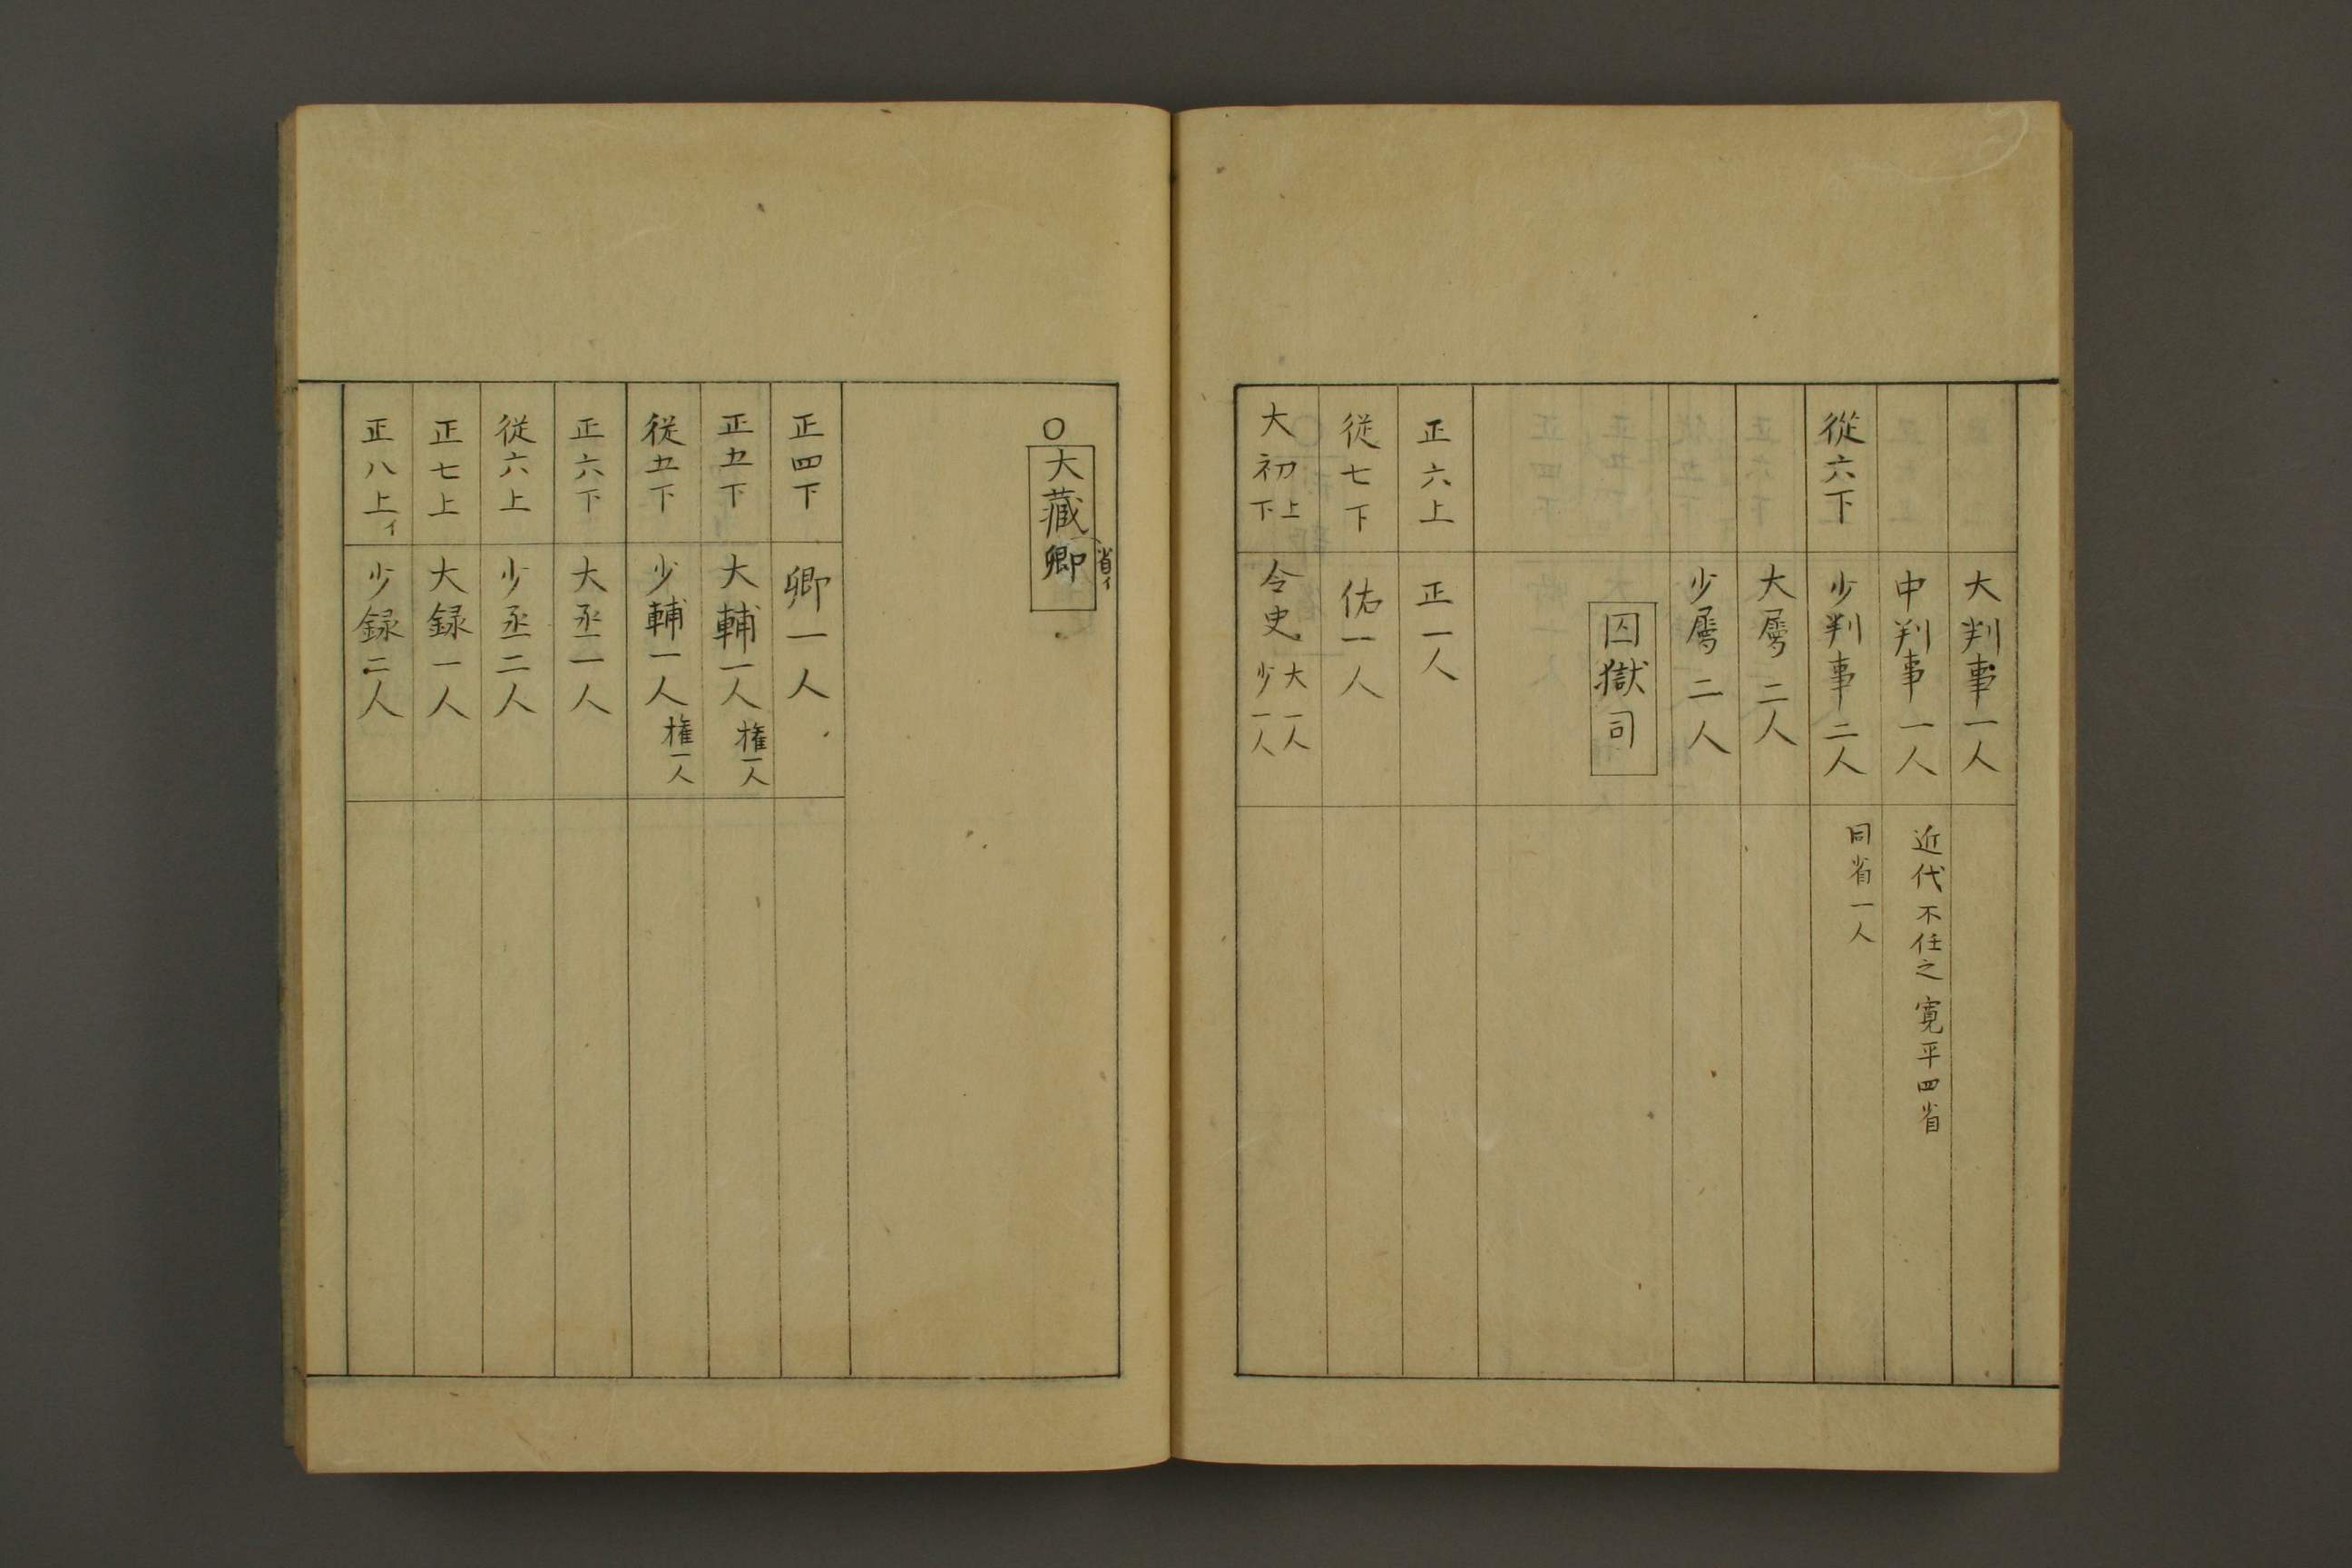 大判事一人
中判事一人 近代不任之寛平四省
從六下 少判事二人 同省一人
大属二人
少属二人
囚獄司
正六上 正一人
從七下 佑一人
大初上下 令史 大一人 少一人
〇大藏卿 省イ
正四下 卿一人
正五下 大輔一人 権一人
從五下 少輔一人 権一人
正六下 大丞一人
從六上 少丞二人
正七上 大録一人
正八上イ 少録二人